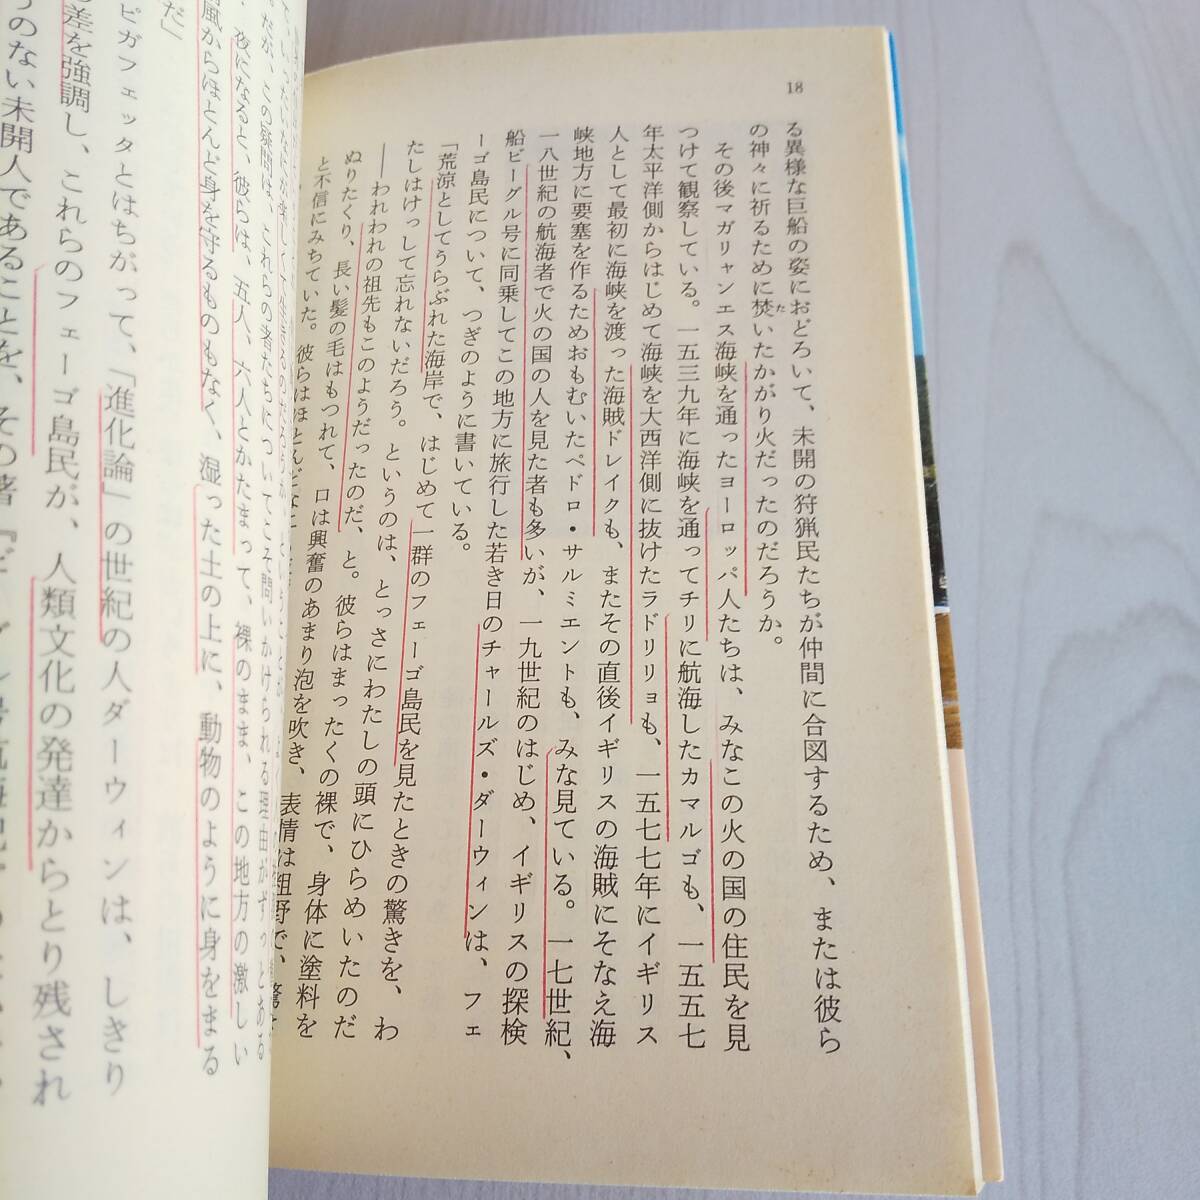 18
る異様な巨船の姿におどろいて、未開の狩猟民たちが仲間に合図するため、または彼ら
の神々に祈るために焚いたかがり火だったのだろうか。
た
その後マガリャンエス海峡を通ったヨーロッパ人たちは、みなこの火の国の住民を見
つけて観察している。一五三九年に海峡を通ってチリに航海したカマルゴも、一五五七
年太平洋側からはじめて海峡を大西洋側に抜けたラドリリョも、一五七七年にイギリス
人として最初に海峡を渡った海賊ドレイクも、またその直後イギリスの海賊にそなえ海
峡地方に要塞を作るためおもむいたペドロ・サルミエントも、みな見ている。一七世紀、
一八世紀の航海者で火の国の人を見た者も多いが、一九世紀のはじめ、イギリスの探検
船ビーグル号に同乗してこの地方に旅行した若き日のチャールズ・ダーウィンは、フェ
ーゴ島民について、つぎのように書いている。
「荒涼としてうらぶれた海岸で、はじめて一群のフェーゴ島民を見たときの驚きを、わ
たしはけっして忘れないだろう。というのは、とっさにわたしの頭にひらめいたのだ
——われわれの祖先もこのようだったのだ、と。彼らはまったくの裸で、身体に塗料を
ぬりたくり、長い髪の毛はもつれて、口は興奮のあまり泡を吹き、表情は粗野で、驚
と不信にみちていた。彼らはほとんど
だが、この疑問は、これらの者たちについてこそ問いかけられる理由がずっとある
夜になると、彼らは、五人、六人とかたまって、裸のまま、この地方の激しい
風からほとんど身を守るものもなく、湿った土の上に、動物のように身をまる
だ」
ピガフェッタとはちがって、「進化論」の世紀の人ダーウィンは、しきり
差を強調し、これらのフェーゴ島民が、人類文化の発達からとり残され
のない未開人であることを、その著